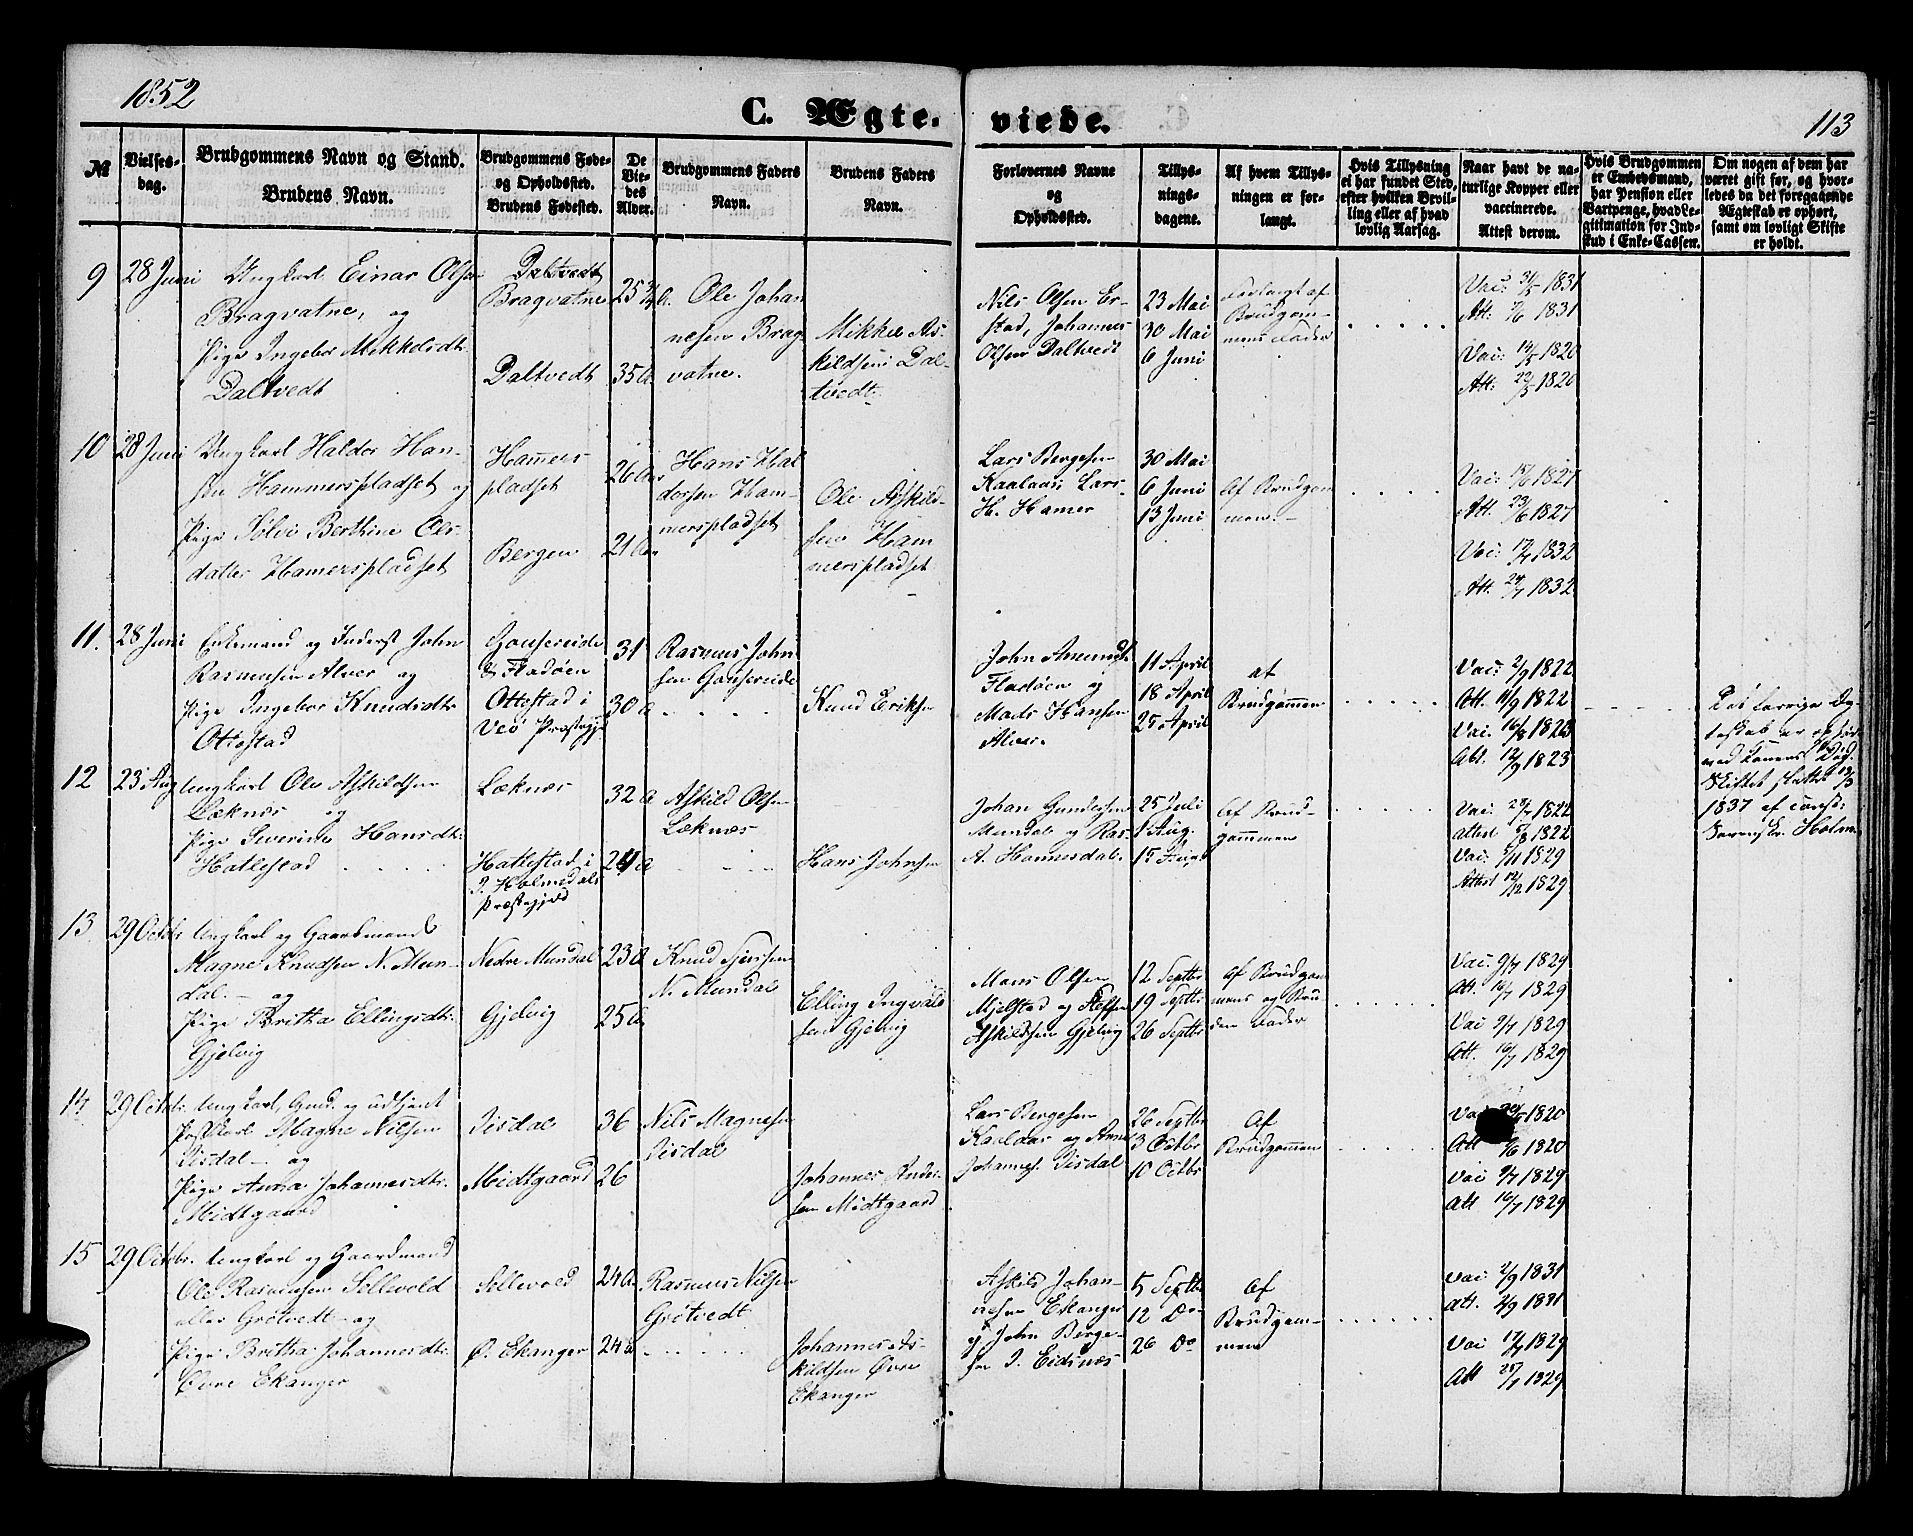 1852
C. Ægte-
viede.
113
№
Vielses-
dag.
Brudgommens Navn og Stand.
Brudens Navn.
Brudgommens Føde-
og Opholdssted.
Brudens Fødested.
De
Vie-
des
Alder.
Brudgommens Faders
Navn.
Brudens Faders
Navn.
Forlovernes Navne
og
Opholdssted.
Tillys-
nings-
dagene.
Af hvem Tillys-
ningen er for-
langt.
Hvis Tillysning
ei har fundet Sted,
efter hvilken Bevil-
ling eller af hvad
lovlig Aarsag.
Naar havt de na-
turlige Kopper eller
vaccinerede.
Attest derom.
Hvis Brudgommen
er Embedsmand,
har Pension eller
Vartpenge, hvad Le-
gitimation for Ind-
skud i Enke-Cassen.
Om nogen af dem har
været gift før, og hvor-
ledes da det foregaaende
Ægteskab er ophørt,
samt om lovligt Skifte
er holdt.
9
28 Juni
Ungkarl Einar Olsen
Bragvatne, og
Pige Ingebor Mikkelsdtr.
Daltvedt
Daltvedt
Bragvatne
Daltvedt
35 A.
Ole Johan
nesen Brag
vatne.
Mikkel As-
kildsen Dal-
tvedt.
Nils Olsen Er-
stad, Johannes
Olsen Daltvedt
23 Mai
30 Mai
6 Juni
Forlangt af
Brudgom-
mens Fader
Vac: 31/5 1831
Att: 7/6 1831
Vac: 14/5 1820
Att: 22/5 1820
10
28 Juni
Ungkarl Haldor Han-
sen Hammerspladset og
Pige Sølvi Berthine Ols-
datter Hamerspladset
Hamers-
pladset
Bergen
26 Aar
21 Aar
Hans Hal
dorsen Ham-
merspladset
Ole Askild-
sen Ham
merspladset
Lars Bergesen
Kaalaas Lars
H. Hamer
30 Mai
6 Juni
13 Juni
Af Brudgom
men.
Vac: 15/6 1827
Att. 23/6 1827
Vac: 17/7 1832
Att. 24/7 1832
11.
28 Juni
Enkemand og Inderst John
Rasmussen Alver og
Pige Ingebor Knudsdtr.
Ottestad
Gousereide
& Fladøen
Ottestad i
Veø Præstegj:
31
30 A
Rasmus John
sen Gousereide
Knud Eriksen
John Amunds.
Fladøen og
Mads Hansen
Alver.
11 April
18 April
25 April
af
Brudgommen
Vac: 2/9 1822
Att. 11/9 1822
Vac: 16/8 1823
Att. 12/9 1823
Det forrige Æg
teskab er ophørt
ved Konens Død.
Skiftet sluttet 13/3
1837 af const:
Sorenskr. Holm
12
23 Aug
Ungkarl Ole Askildsen
Læknes og
Pige Severine Hansdtr.
Hatlestad
Læknes
Hatlestad i
I. Holmedals
Præstegjeld
32 A
24 A
Askild Olsen
Læknes
Hans Johnsen
Johan Gundersen
Mundal og Ras.
A. Hannesdal.
25 Juli
1 Aug.
15 Aug.
Af Brud-
gommen
Vac: 28/7 1822
attest 5/8 1822
Vac: 5/11 1829
Attest 12/12 1829
13
29 Octbr.
Ungkarl og Gaardmand
Magne Knudsen N. Mun-
dal. – og
Pige Britha Ellingsdtr.
Gjelvig
Nedre Mundal
Gjelvig
23 A
25 A
Knud Sjursen
N. Mundal
Elling Ingvald
sen Gjelvig
Mons Olsen
Mjelstad og Steffen
Askildsen Gjelvig
12 Septbr
19 Septbr
26 Septbr
Af Brudgom
mens og Bru
den Fader
Vac: 9/7 1829
Att. 16/7 1829
Vac 9/7 1829
Att. 16/7 1829
14
29 Octbr.
Ungkarl, Gmd. og udtjent
Postkarl Magne Nilsen
Iisdal – og
Pige Anna Johannesdtr.
Midtgaard
Iisdal
Midtgaard
36
26
Nils Magnesen
Iisdal
Johannes Ander-
sen Midtgaard
Lars Bergesen
Kaalaas og Anne
Johannes. Iisdal
26 Septbr
3 Octbr
10 Octbr
Af
Brudgommen
Vac 1820
Att 1820
Vac 9/7 1829
Att 16/7 1829
15
29 Octbr.
Ungkarl og Gaardmand
Ole Rasmussen Sellevold
eller Grötvedt og
Pige Britha Johannesdtr.
Övre Ekanger
Sellevold
Ø. Ekanger
24 A
24 A
Rasmus Nilsen
Grötvedt
Johannes As-
kildsen Övre
Ekanger
Askild Johan-
nesen Ekanger
og John Berge-
sen I. Eidsnæs
5 Septbr
12 Do
26 Do
Af
Brudgom-
men
Vac 2/9 1831
Att. 1831
Vac 17/7 1829
Att 25/7 1829